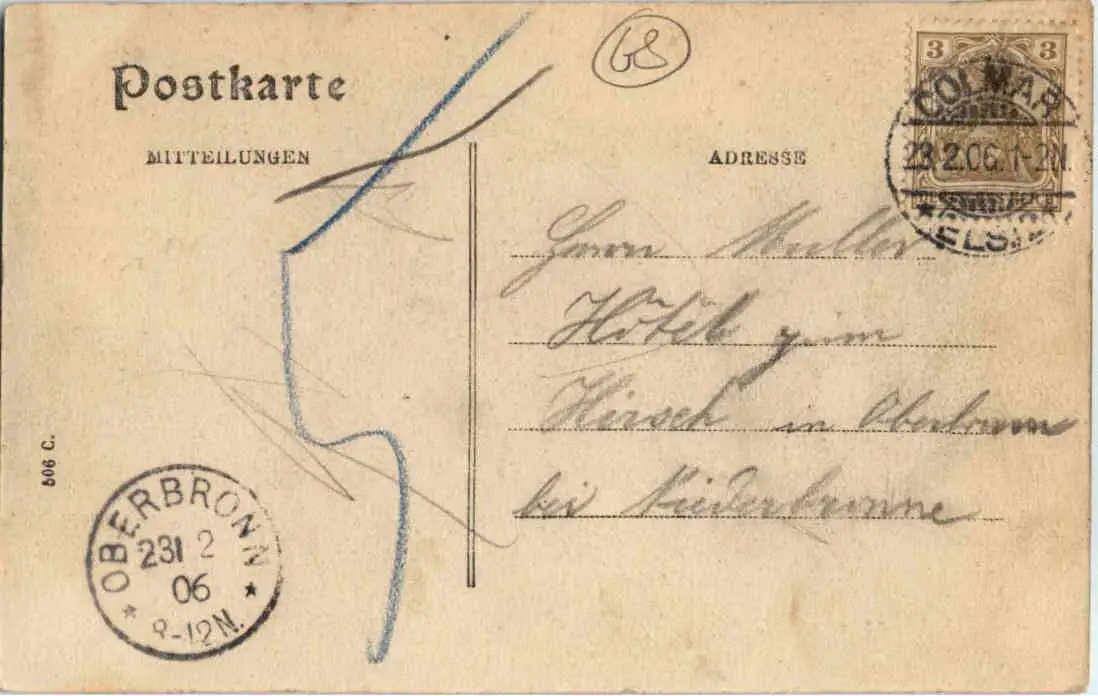 68
Postkarte
3 3
COLMAR
23.2.06.1-2N.
* ELS.
MITTEILUNGEN
ADRESSE
Herrn Muller
Hôtel zum
Hirsch in Oberbronn
bei Niederbronne
506 C.
OBERBRONN
23 2
06
* 8-12N. *